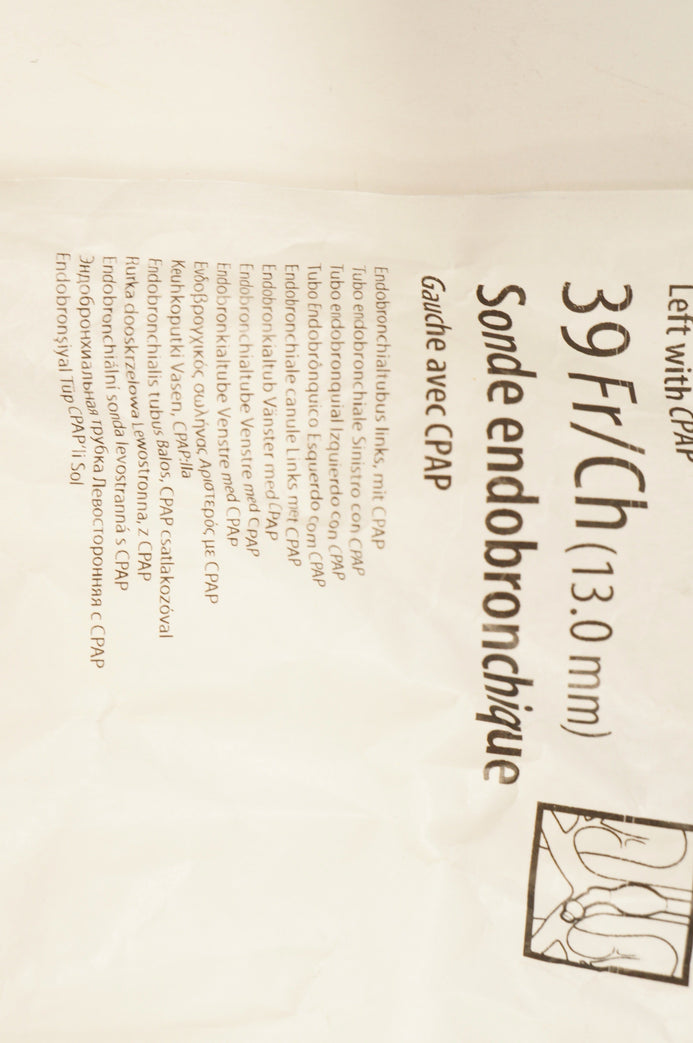 Left with CPAP
39 Fr/Ch (13.0 mm)
Sonde endobronchique
Gauche avec CPAP
Endobronchialtubus links, mit CPAP
Tubo endobronchiale Sinistro con CPAP
Tubo endobronquial Izquierdo con CPAP
Tubo Endobrônquico Esquerdo com CPAP
Endobronchiale canule Links met CPAP
Endobronkialtub Vänster med CPAP
Endobronchialtube Venstre med CPAP
Endobronkialtube Venstre med CPAP
Ενδοβρογχικός σωλήνας Αριστερός με CPAP
Keuhkoputki Vasen, CPAP:lla
Endobronchialis tubus Balos, CPAP csatlakozóval
Rurka dooskrzelowa Lewostronna, z CPAP
Endobronchiální sonda levostranná s CPAP
Эндобронхиальная трубка Левосторонняя с CPAP
Endobronşiyal Tüp CPAP'li Sol